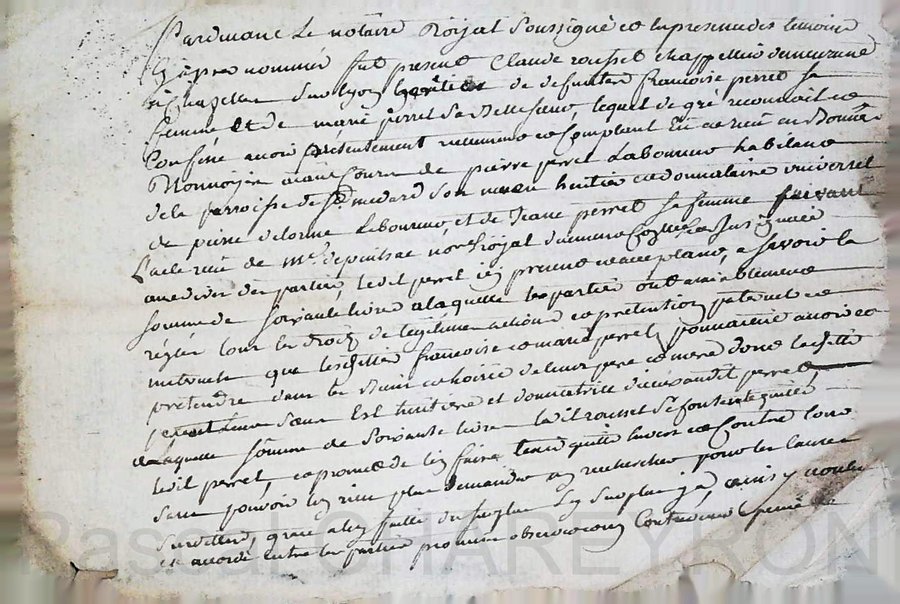 Pardevant Le notaire Roÿal Soussigné et En presence des temoins
Cÿ apres nommés fut present Claude rousset chappellier demeurant
a Chazelles Sur Lyon heritier de deffunte françoise perret Sa
femme Et de marie perret Sa Belle Soeur, lequel de gré reconnoit et
Confesse avoir présentement receu Comptant En
Monnoÿe aiant Cours de pierre perret Laboureur habitant
de la parroisse de St medard Son neveu heritier et donnataire universel
de pierre delorme Laboureur, et de Jeane perret Sa femme Suivant
L'acte receu de Me depuitsac nore Roÿal
au desir des parties, ledit perret icy present et acceptant, a Savoir la
Somme de Soixante livres a laquelle les parties ont amiablement
réglés tous les droits de legitime actions et pretentions paternels et
maternels que lesdittes françoise et marie perret pouvoient avoir et
pretendre dans les Biens et hoirie de leurs pere et mere dont laditte
perret leur Soeur Est heritiere et donnatrice perret
de laquelle Somme de Soixante livres ledit rousset Se Contente et quitte
ledit perret, et promet de l'en faire tenir quitte Envers et Contre tous
Sans pouvoir En rien plus demander ny rechercher pour les Causes
Surdittes, grace a luÿ faitte du Surplus Sy Surplus y a, ainsy voulu
et accordé entre les parties promis observer
Pascal CHAREYRON